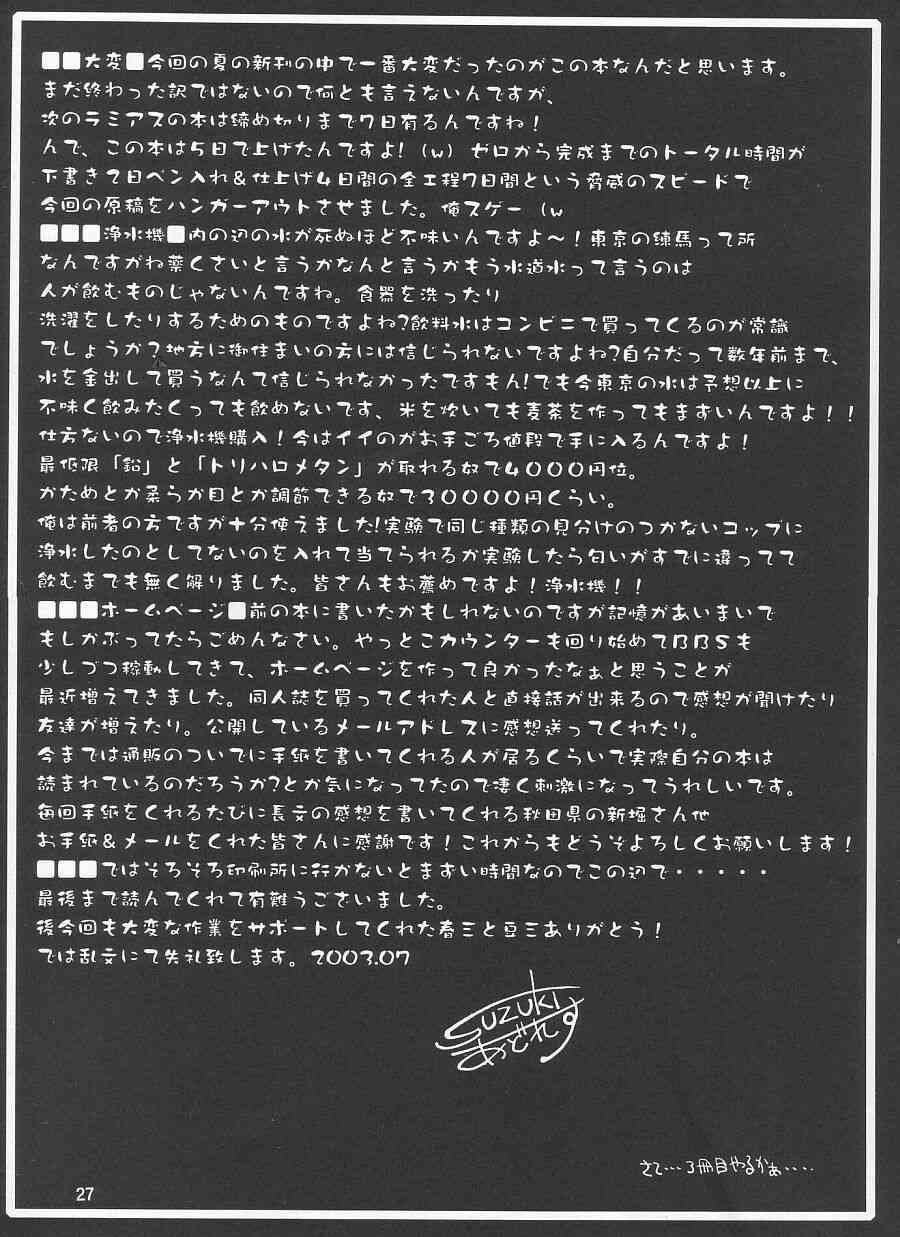 ■■大変■今回の夏の新刊の中で一番大変だったのがこの本なんだと思います。
まだ終わった訳ではないので何とも言えないんですが、
次のラミアスの本は締め切りまで7日有るんですね！
んで、この本は5日で上げたんですよ!（w）ゼロから完成までのトータル時間が
下書き2日ペン入れ＆仕上げ4日間の全工程7日間という脅威のスピードで
今回の原稿をハンガーアウトさせました。俺スゲー（w
■■■浄水機■内の辺の水が死ぬほど不味いんですよ～！東京の練馬って所
なんですがね薬くさいと言うかなんと言うかもう水道水って言うのは
人が飲むものじゃないんですね。食器を洗ったり
洗濯をしたりするためのものですよね?飲料水はコンビニで買ってくるのが常識
でしょうか？地方に御住まいの方には信じられないですよね?自分だって数年前まで、
水を金出して買うなんて信じられなかったですもん!でも今東京の水は予想以上に
不味く飲みたくっても飲めないです、米を炊いても麦茶を作ってもまずいんですよ！！
仕方ないので浄水機購入！今はイイのがお手ごろ値段で手に入るんですよ！
最低限「鉛」と「トリハロメタン」が取れる奴で4000円位。
かためとか柔らか目とか調節できる奴で30000円くらい。
俺は前者の方ですが十分使えました!実験で同じ種類の見分けのつかないコップに
浄水したのとしてないのを入れて当てられるか実験したら匂いがすでに違ってて
飲むまでも無く解りました。皆さんもお薦めですよ！浄水機！！
■■■ホームページ■前の本に書いたかもしれないのですが記憶があいまいで
もしかぶってたらごめんなさい。やっとこカウンターも回り始めてBBSも
少しづつ稼動してきて、ホームページを作って良かったなぁと思うことが
最近増えてきました。同人誌を買ってくれた人と直接話が出来るので感想が聞けたり
友達が増えたり。公開しているメールアドレスに感想送ってくれたり。
今までは通販のついでに手紙を書いてくれる人が居るくらいで実際自分の本は
読まれているのだろうか?とか気になってたので凄く刺激になってうれしいです。
毎回手紙をくれるたびに長文の感想を書いてくれる秋田県の新堀さん他
お手紙＆メールをくれた皆さんに感謝です！これからもどうぞよろしくお願いします！
■■■ではそろそろ印刷所に行かないとまずい時間なのでこの辺で・・・・・
最後まで読んでくれて有難うございました。
後今回も大変な作業をサポートしてくれた春三と豆三ありがとう！
では乱文にて失礼致します。2003.07
SUZUKI
あどれす
さて…3冊目やるかぁ‥‥
27